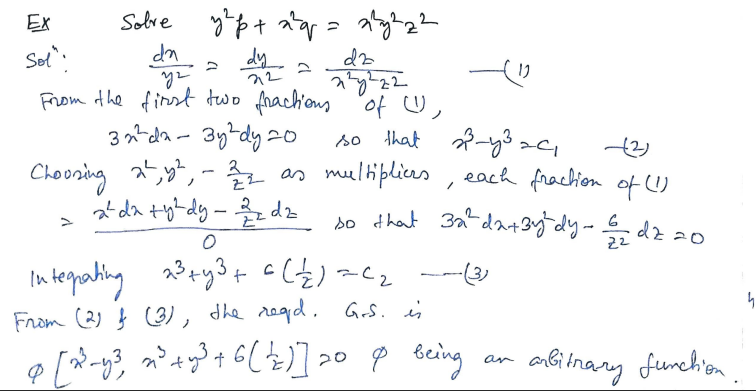 Ex Solve y²p + x²q = x²y²z²
Solⁿ: dx/y² = dy/x² = dz/x²y²z² —(1)
From the first two fractions of (1),
3x²dx - 3y²dy = 0 so that x³-y³ = c₁ —(2)
Choosing x², y², -2/z² as multipliers, each fraction of (1)
= (x²dx + y²dy - 2/z² dz)/0 so that 3x²dx + 3y²dy - 6/z² dz = 0
Integrating x³+y³ + 6(1/z) = c₂ —(3)
From (2) & (3), the reqd. G.S. is
φ[x³-y³, x³+y³+6(1/z)] = 0 φ being an arbitrary function.